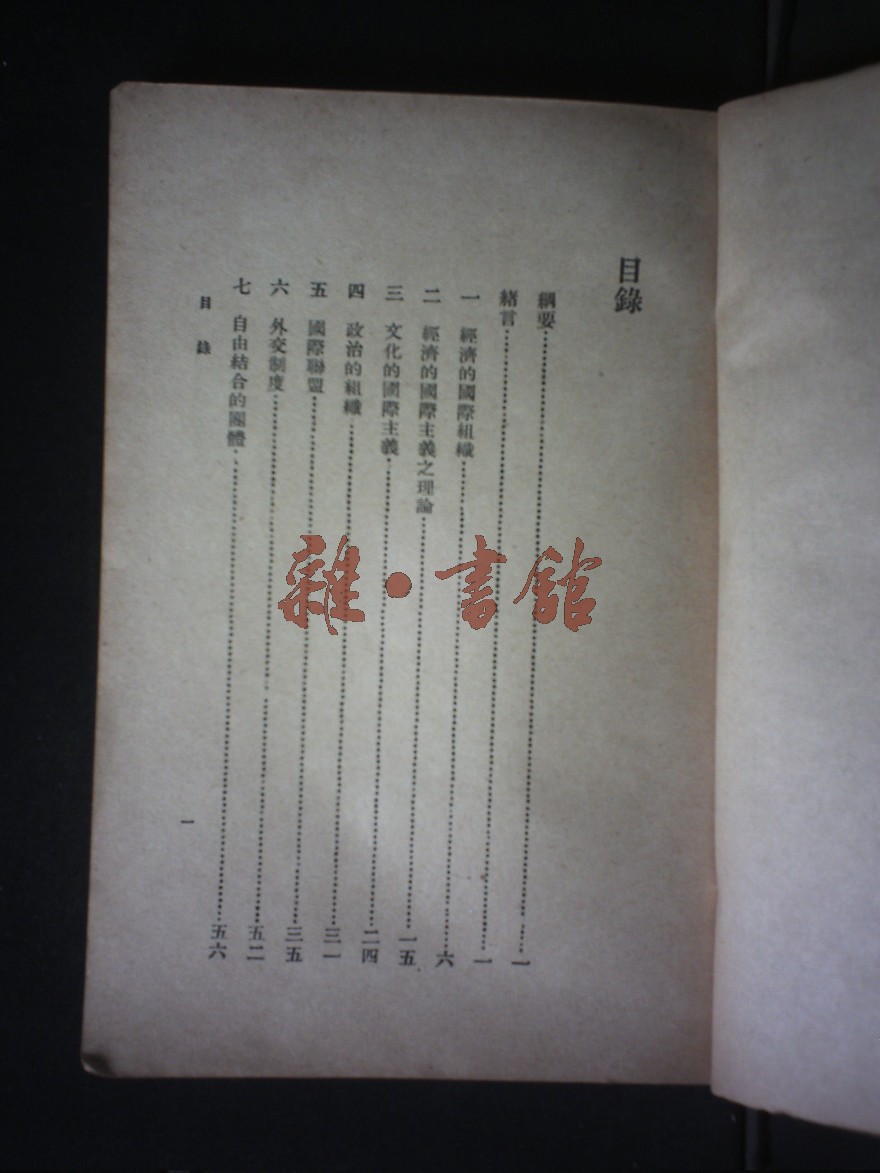 目錄
綱要……一
緒言……一
一 經濟的國際組織……六
二 經濟的國際主義之理論……一五
三 文化的國際主義……二四
四 政治的組織……三一
五 國際聯盟……三五
六 外交制度……五二
七 自由結合的團體……五六
目錄
一
雜·書館